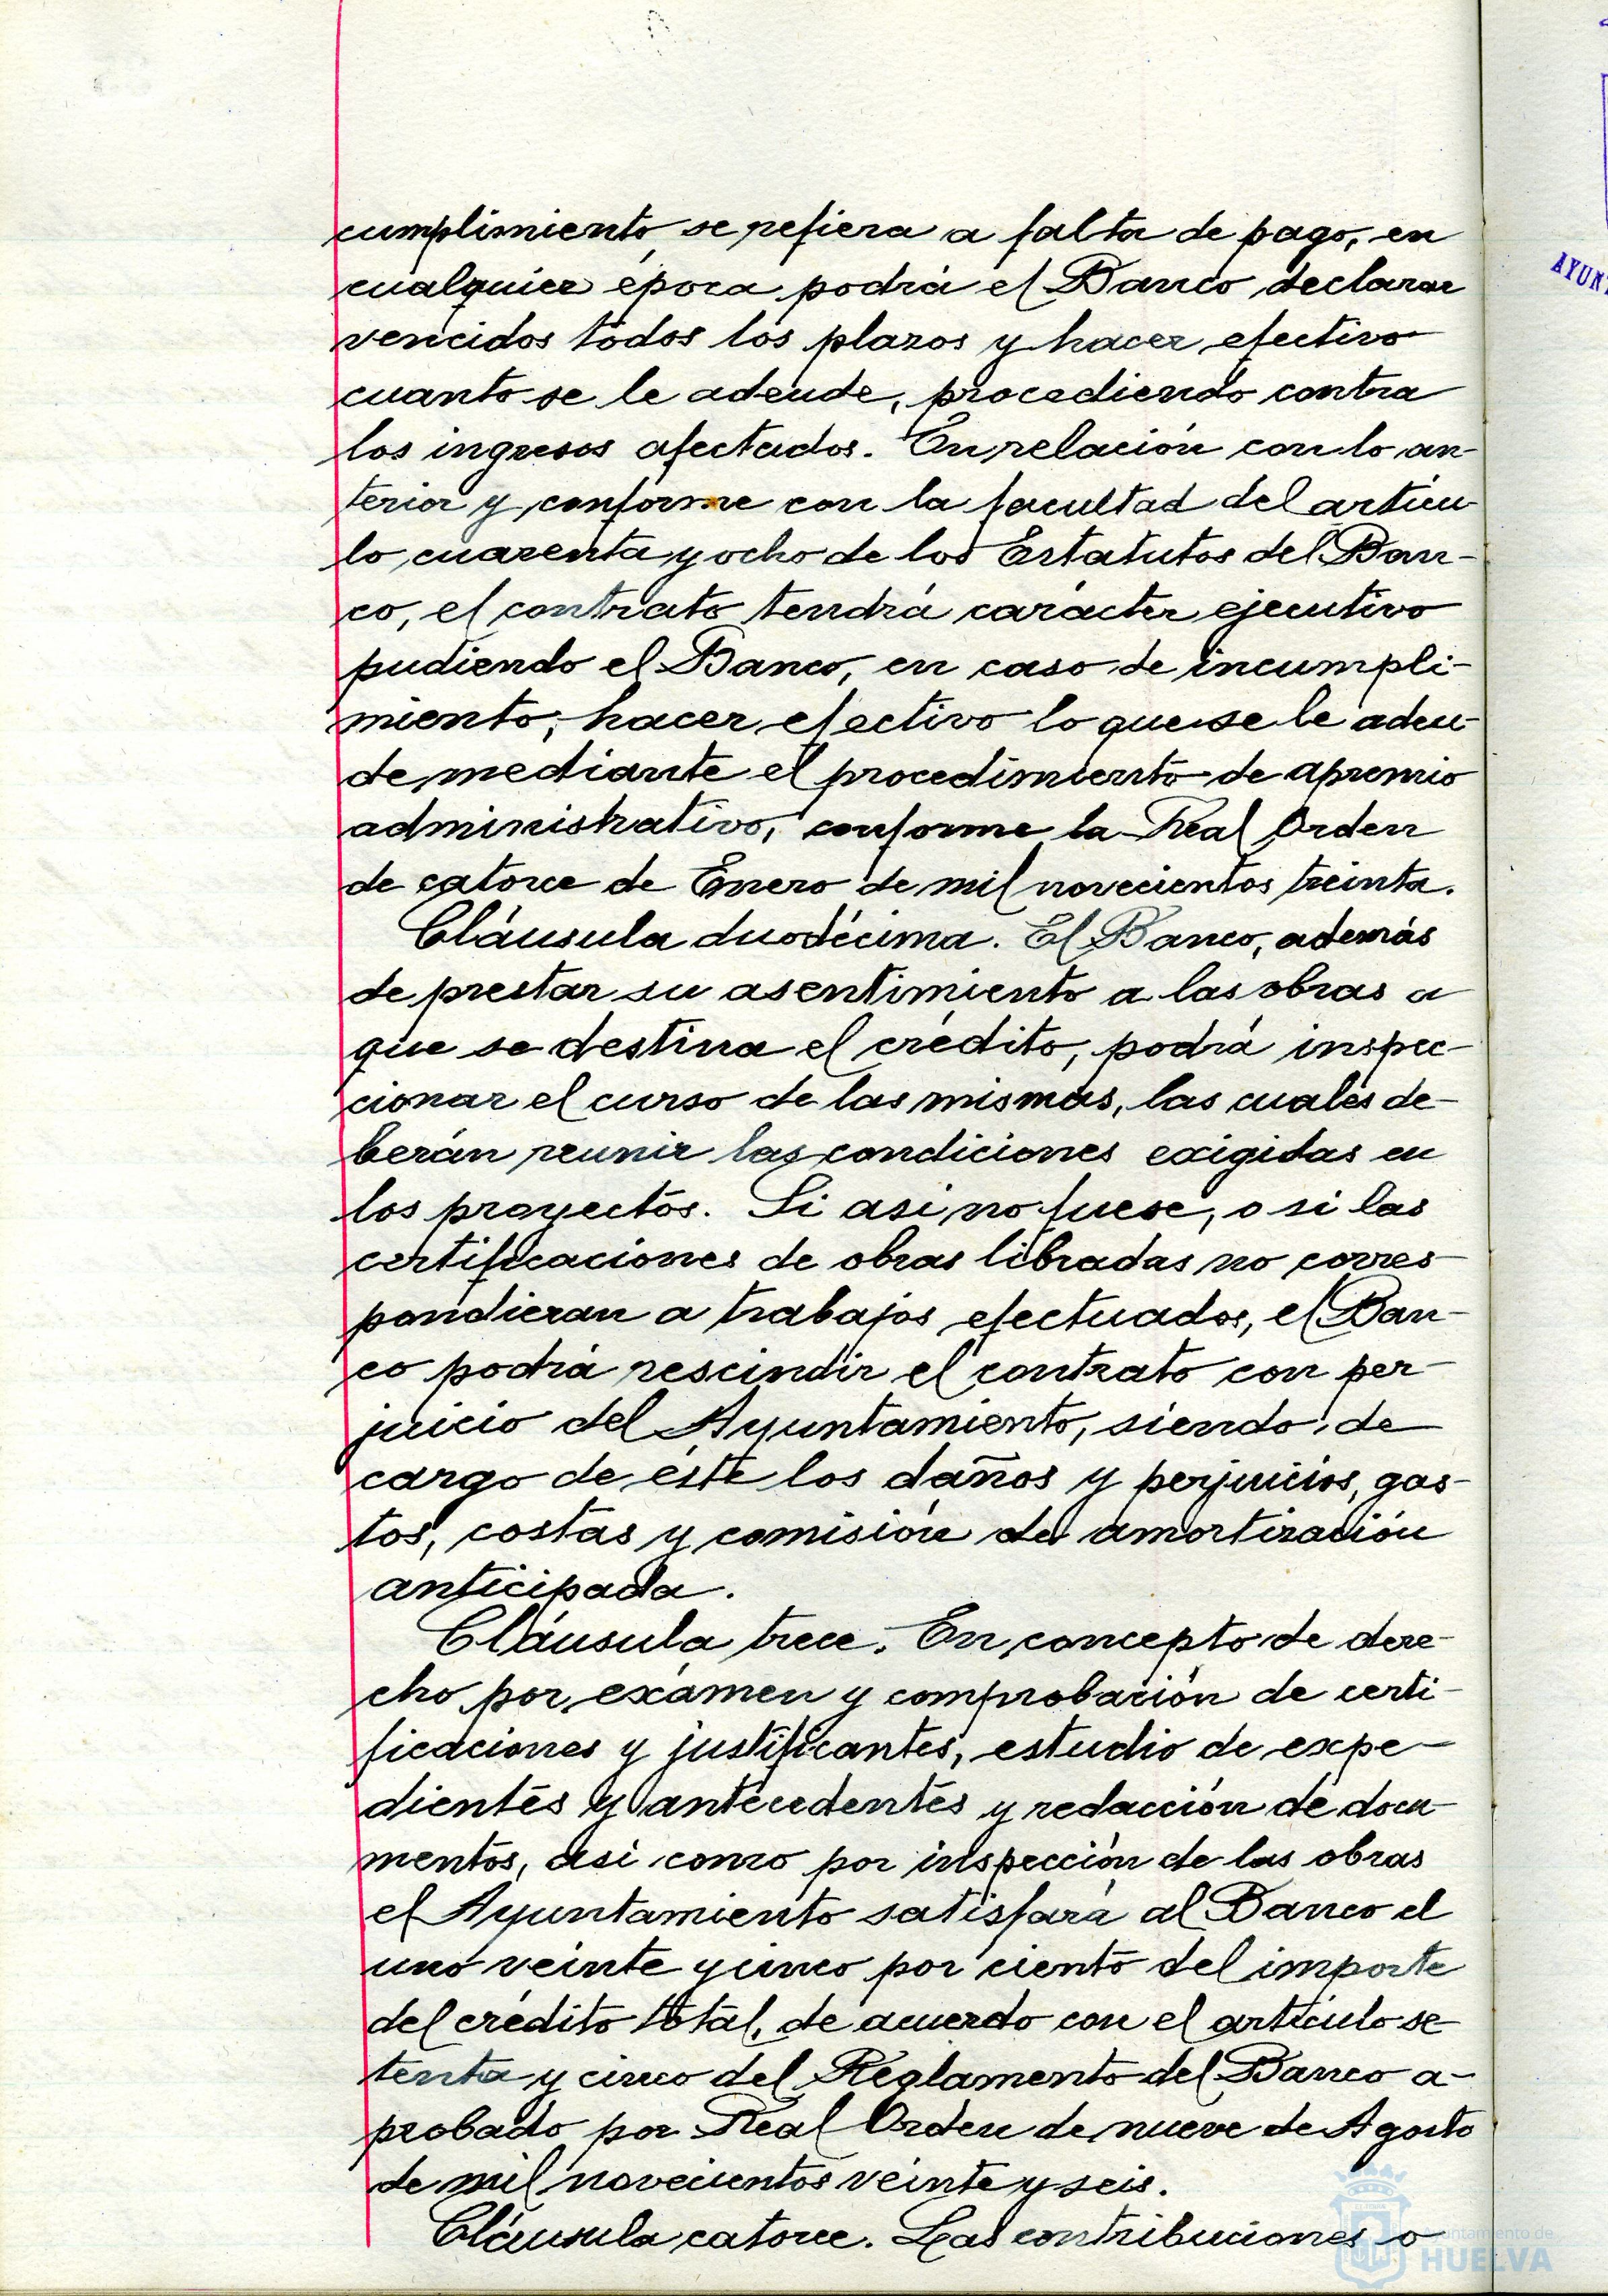 cumplimiento se refiera a falta de pago, en
cualquier época podrá el Banco declarar
vencidos todos los plazos y hacer efectivo
cuanto se le adeude, procediendo contra
los ingresos afectados. En relación con lo an-
terior y conforme con la facultad del artícu-
lo cuarenta y ocho de los Estatutos del Ban-
co, el contrato tendrá carácter ejecutivo
pudiendo el Banco, en caso de incumpli-
miento, hacer efectivo lo que se le adeu-
de mediante el procedimiento de apremio
administrativo, conforme la Real Orden
de catorce de Enero de mil novecientos treinta.
Cláusula duodécima. El Banco, además
de prestar su asentimiento a las obras a
que se destina el crédito, podrá inspec-
cionar el curso de las mismas, las cuales de-
berán reunir las condiciones exigidas en
los proyectos. Si asi no fuese, o si las
certificaciones de obras libradas no corres-
pondieran a trabajos efectuados, el Ban-
co podrá rescindir el contrato con per-
juicio del Ayuntamiento, siendo de
cargo de éste los daños y perjuicios, gas-
tos, costas y comisión de amortización
anticipada.
Cláusula trece. En concepto de dere-
cho por exámen y comprobación de certi-
ficaciones y justificantes, estudio de expe-
dientes y antecedentes y redacción de docu-
mentos, asi como por inspección de las obras
el Ayuntamiento satisfará al Banco el
uno veinte y cinco por ciento del importe
del crédito total, de acuerdo con el artículo se-
tenta y cinco del Reglamento del Banco a-
probado por Real Orden de nueve de Agosto
de mil novecientos veinte y seis.
Cláusula catorce. Las contribuciones o
Ayuntamiento de
HUELVA